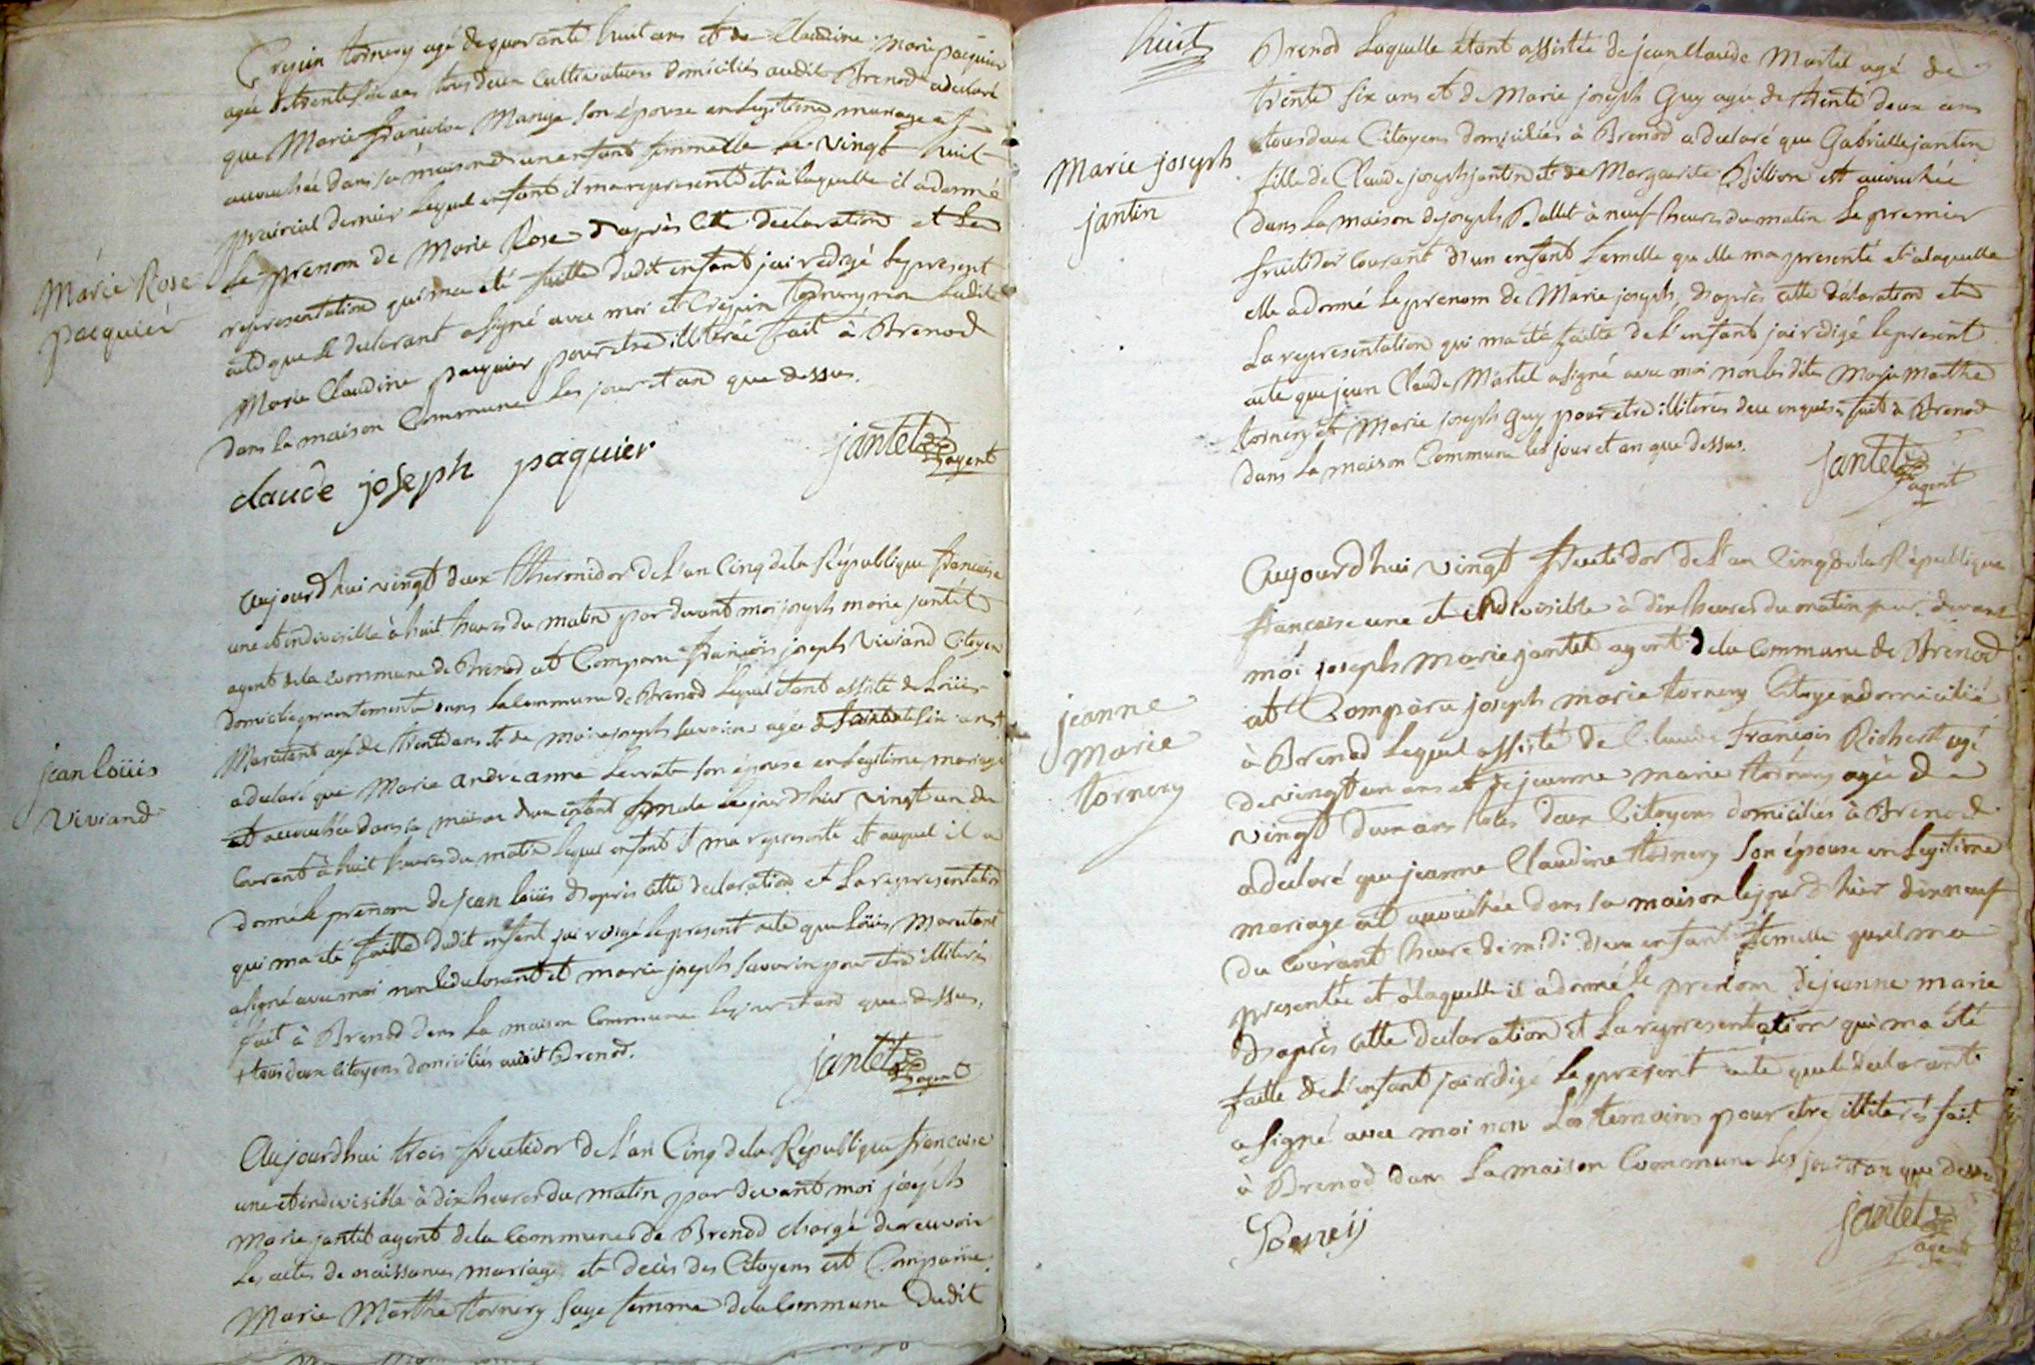 Crepin tornery agé de quarante huit ans et de Claudine Marie paquier
agée de trente six ans tous deux Cultivateurs domiciliés audit Brenod a declaré
que Marie françoise Manige son épouse en legitime mariage
accouchée dans sa maison d'un enfant femmelle le vingt huit
prairial dernier lequel enfant il ma representé et à laquelle il a donné
le prenom de Marie Rose d'apres cette declaration et la
representation qui ma été faitte dudit enfant jai redigé le present
acte que le declarant a signé avec moi et Crepin tornery non ladite
Marie Claudine paquier pour etre illiterée fait à Brenod
dans la maison Commune les jour et an que dessus.
Marie Rose
paquier
claude joseph paquier
jantet
agent
Aujourdhui vingt deux thermidor de l'an Cinq de la République francaise
une et indivisible à huit heures du matin par devant moi joseph marie jantet
agent de la commune de Brenod est Comparu françois joseph Viviand Citoyen
domicilié dans la commune de Brenod lequel etant assisté de Loüis
Marutant agé de trente ans et de marie joseph savarin agée de six ans +
a declaré que Marie andréanne Levrat son épouse en legitime mariage
est accouchée dans sa maison d'un enfant le jour d'hier vingt un du
Courant à huit heures du matin lequel enfant il ma representé et auquel il a
donné le prenom de jean loüis d'après cette declaration et la representation
qui ma été faitte dudit enfant jai redigé le present acte que Loüis Marutant
a signé avec moi non le declarant et marie joseph savarin pour etre illiterés
fait à Brenod dans la maison Commune les jour et an que dessus.
+ tous deux citoyens domiciliés audit Brenod.
jean loüis
viviand
jantet
agent
Aujourdhui trois fructidor de l'an Cinq de la République francaise
une et indivisible à dix heures du matin par devant moi joseph
marie jantet agent de la commune de Brenod chargé de recevoir
les actes de naissances mariages et deces des Citoyens est Comparüe
Marie Marthe tornery sage femme de la Commune dudit
huit
Brenod laquelle étant assistée de jean Claude Martel agé de
trente six ans et de Marie joseph Guy agée de trente deux ans
tous deux Citoyens domiciliés à Brenod a declaré que Gabrielle jantin
fille de Claude joseph jantin et de Margarite Billion est accouchée
dans la maison de joseph Ballet à neuf heures du matin le premier
fructidor Courant d'un enfant femelle qu'elle ma presenté et à laquelle
elle a donné le prenom de Marie joseph, d'après cette declaration et
la representation qui ma été faitte de l'enfant jai redigé le present
acte que jean Claude Martel a signé avec moi non les dites Marie marthe
tornery et Marie joseph Guy pour etre illiterés de ce enquises fait à Brenod
dans la maison Commune les jour et an que dessus.
Marie joseph
jantin
jantet
agent
Aujourdhui vingt fructidor de l'an Cinq de la République
francaise une et indivisible à dix heures du matin par devant
moi joseph marie jantet agent de la Commune de Brenod
est Comparu joseph marie tornery Citoyen domicilié
à Brenod lequel assisté de Claude françois Richerot agé
de vingt un ans et de jeanne marie tornery agée de
vingt deux ans tous deux Citoyens domiciliés à Brenod
a declaré que jeanne Claudine tornery son épouse en legitime
mariage est accouchée dans sa maison le jour d'hier dix neuf
du courant heure de midi d'un enfant femelle qu'il ma
presentée et à laquelle il a donné le prenom de jeanne marie
d'après cette declaration et la representation qui ma été
faitte de l'enfant jai redigé le present acte que le declarant
a signé avec moi non les temoins pour etre illiterés fait
à Brenod dans la maison Commune les jour et an que dessus
jeanne
marie
tornery
jantet
agent